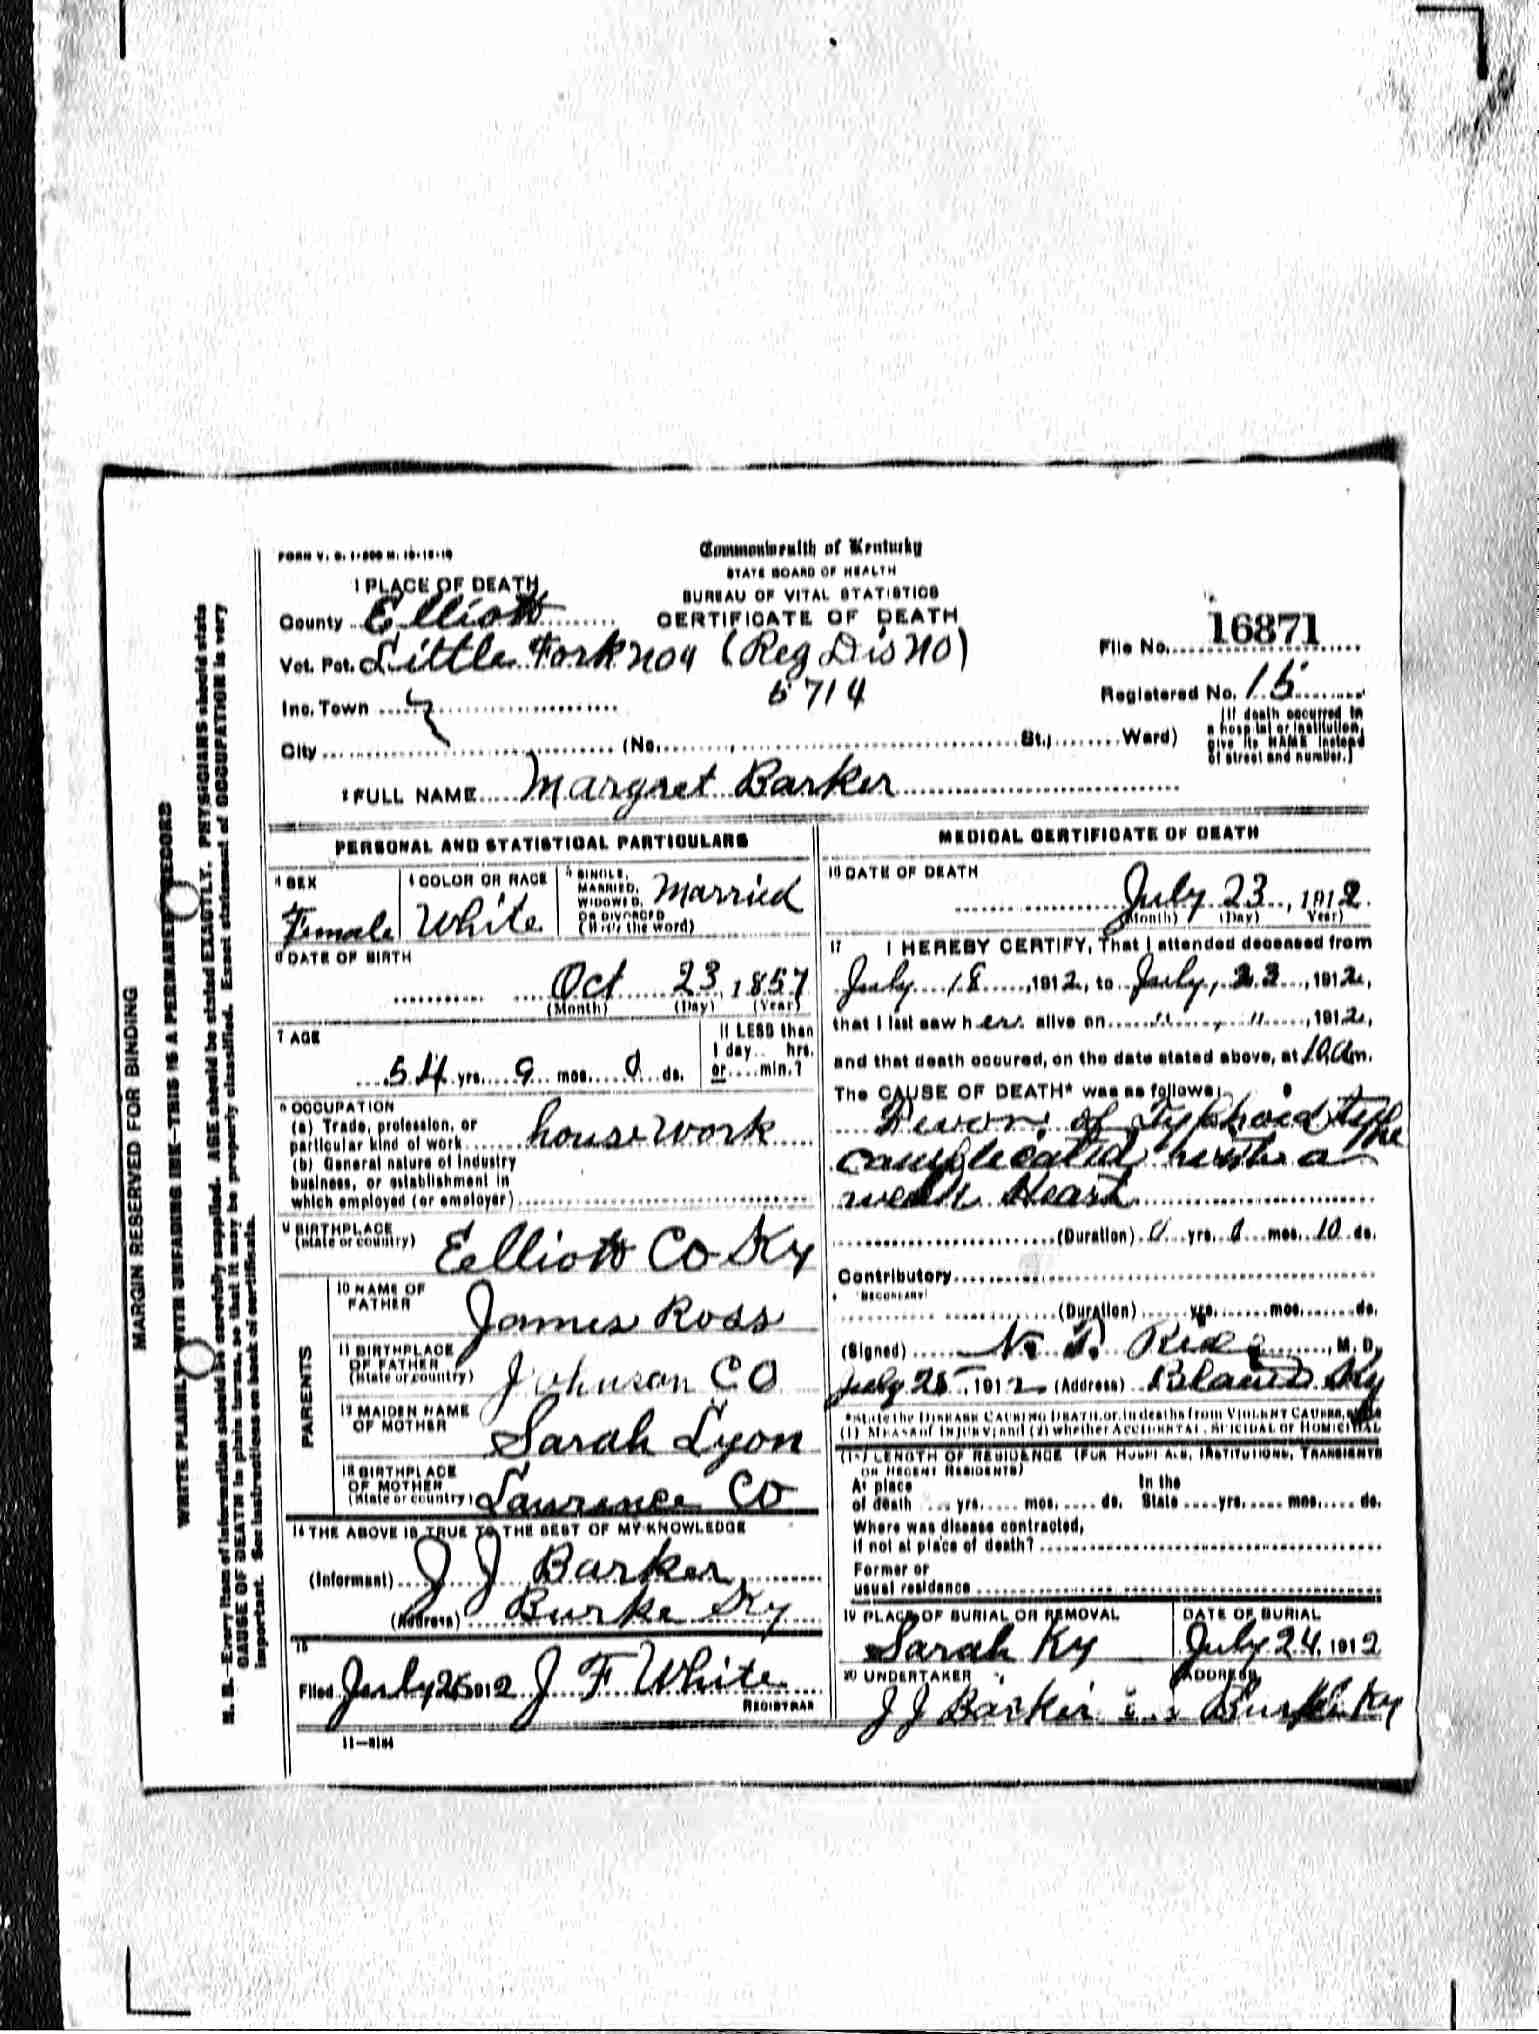 MARGIN RESERVED FOR BINDING
WRITE PLAINLY WITH UNFADING INK—THIS IS A PERMANENT RECORD
N. B.—Every item of information should be carefully supplied. AGE should be stated EXACTLY. PHYSICIANS should state
CAUSE OF DEATH in plain terms, so that it may be properly classified. Exact statement of OCCUPATION is very
important. See instructions on back of certificate.
FORM V. S. 1-
Commonwealth of Kentucky
STATE BOARD OF HEALTH
BUREAU OF VITAL STATISTICS
CERTIFICATE OF DEATH
1 PLACE OF DEATH
County Elliott
Vot. Pct. Little Fork no 4 (Reg Dis NO)
5714
File No. 16871
Inc. Town
Registered No. 15
City (No. , St.; Ward)
(If death occurred in
a hospital or institution,
give its NAME instead
of street and number.)
2 FULL NAME Margret Barker
PERSONAL AND STATISTICAL PARTICULARS
3 SEX
Female
4 COLOR OR RACE
White
5 SINGLE,
MARRIED,
WIDOWED,
OR DIVORCED
(Write the word)
Married
6 DATE OF BIRTH
Oct 23, 1857
(Month) (Day) (Year)
7 AGE
54 yrs. 9 mos. 0 ds.
If LESS than
1 day.. hrs.
or.... min.?
8 OCCUPATION
(a) Trade, profession, or
particular kind of work house work
(b) General nature of industry
business, or establishment in
which employed (or employer)
9 BIRTHPLACE
(State or country)
Eelliott Co Ky
PARENTS
10 NAME OF
FATHER
James Ross
11 BIRTHPLACE
OF FATHER
(State or country)
Johnson CO
12 MAIDEN NAME
OF MOTHER
Sarah Lyon
13 BIRTHPLACE
OF MOTHER
(State or country)
Lawrence CO
14 THE ABOVE IS TRUE TO THE BEST OF MY KNOWLEDGE
(Informant) J J Barker
(Address) Burke Ky
15
Filed July 25 1912 J F White
REGISTRAR
11—
MEDICAL CERTIFICATE OF DEATH
16 DATE OF DEATH
July 23, 1912
(Month) (Day) (Year)
17 I HEREBY CERTIFY, That I attended deceased from
July 18, 1912, to July, 23, 1912,
that I last saw her alive on " , " , 1912,
and that death occured, on the date stated above, at 10 am.
The CAUSE OF DEATH* was as follows:
of Typhoid type
complicated with a
weak Heart
(Duration) 0 yrs. 0 mos. 10 ds.
Contributory
SECONDARY
(Duration) yrs. mos. ds.
(Signed) N. T. Rice, M. D.
July 25, 1912 (Address) Bland Ky
*State the DISEASE CAUSING DEATH, or, in deaths from VIOLENT CAUSES, state
(1) MEANS OF INJURY; and (2) whether ACCIDENTAL, SUICIDAL OR HOMICIDAL
(18) LENGTH OF RESIDENCE (FOR HOSPITALS, INSTITUTIONS, TRANSIENTS
OR RECENT RESIDENTS)
At place
of death yrs. mos. ds.
In the
State yrs. mos. ds.
Where was disease contracted,
if not at place of death?
Former or
usual residence
19 PLACE OF BURIAL OR REMOVAL
Sarah Ky
DATE OF BURIAL
July 24, 1912
20 UNDERTAKER
J J Barker
ADDRESS
Burke Ky